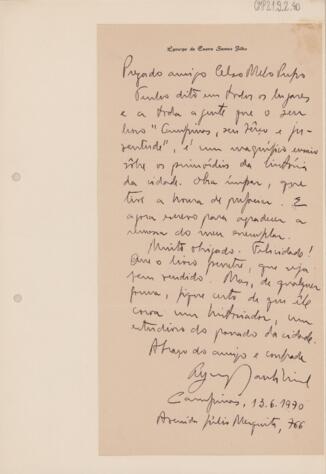 CMP21.9.2.90
Lycurgo de Castro Santos Filho
Prezado amigo Celso Melo Pupo
Tenho dito em todos os lugares
e a toda a gente que o seu
livro "Campinas, seu berço e ju-
ventude", é um magnífico ensaio
sôbre os primórdios da história
da cidade. Obra ímpar, que
tive a honra de prefaciar. E
agora escrevo para agradecer a
remessa do meu exemplar.
Muito obrigado. Felicidade!
Que o livro penetre, que seja
bem vendido. Mas, de qualquer
forma, fique certo de que êle
coroa um historiador, um
estudioso do passado da cidade.
Abraço do amigo e confrade
Campinas, 13.6.1970
Avenida Júlio Mesquita, 766